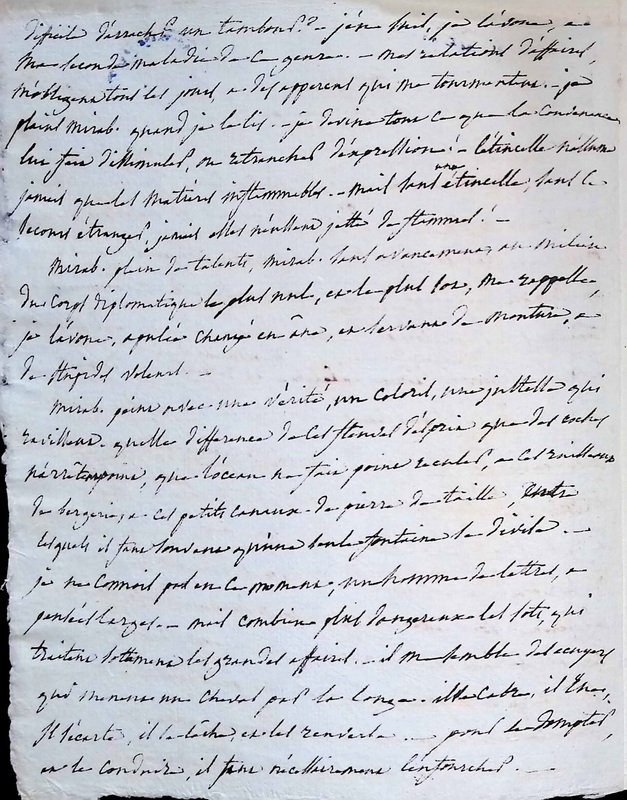 difficile d'arracher un tambour? - j'en suis, je l'avoue, à
ma seconde maladie de ce genre. - mes relations d'affaires,
m'obligent tous les jours, à des apperçus qui me tourmentent. - je
plains mirab. quand je le lis. - je devine tout ce que la convenance
lui fait dissimuler, ou retrancher d'expression! - l'étincelle n'allume
jamais que les matières inflammables. - mais sans une étincelle, sans le
secours étranger, jamais elles n'eussent jetté de flammes! -
mirab. plein de talents, mirab. sans avancement, au milieu
du corps diplomatique le plus nul, et le plus sot, me rappelle,
je l'avoue, apulée changé en âne, et servant de monture, à
de stupides voleurs. -
mirab. peint avec une vérité, un coloris, une justesse qui
ravissent. quelle différence de ces fleuves d'esprit que des roches
n'arrêtent point, que l'océan ne fait point reculer, à ces ruisseaux
de bergerie, à ces petits canaux de pierre de taille, entre
lesquels il faut souvent qu'une seule fontaine se divise. -
je ne connois pas en ce moment, un homme de lettres, à
pensées larges. - mais combien plus dangereux les sots, qui
traitent sottement les grandes affaires. - il me semble des écuyers
qui mènent un cheval par la longe. il se cabre, il rue,
s'il s'écarte, il se lâche, et les renverse. - pour le dompter,
et le conduire, il faut nécessairement l'enfourcher. -